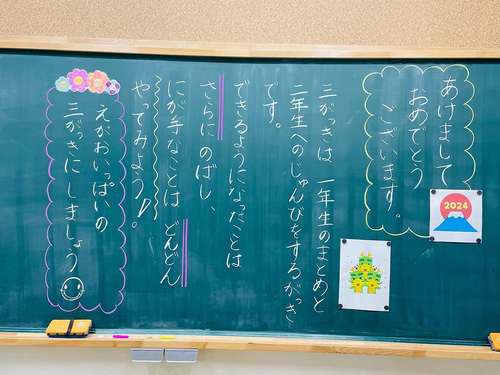 あけまして
おめでとう
ございます。
2024
三がっきは、一年生のまとめと
二年生へのじゅんびをするがっき
です。
できるようになったことは
さらに のばし、
にが手なことは どんどん
やってみよう。
えがおいっぱいの
三がっきに しましょう